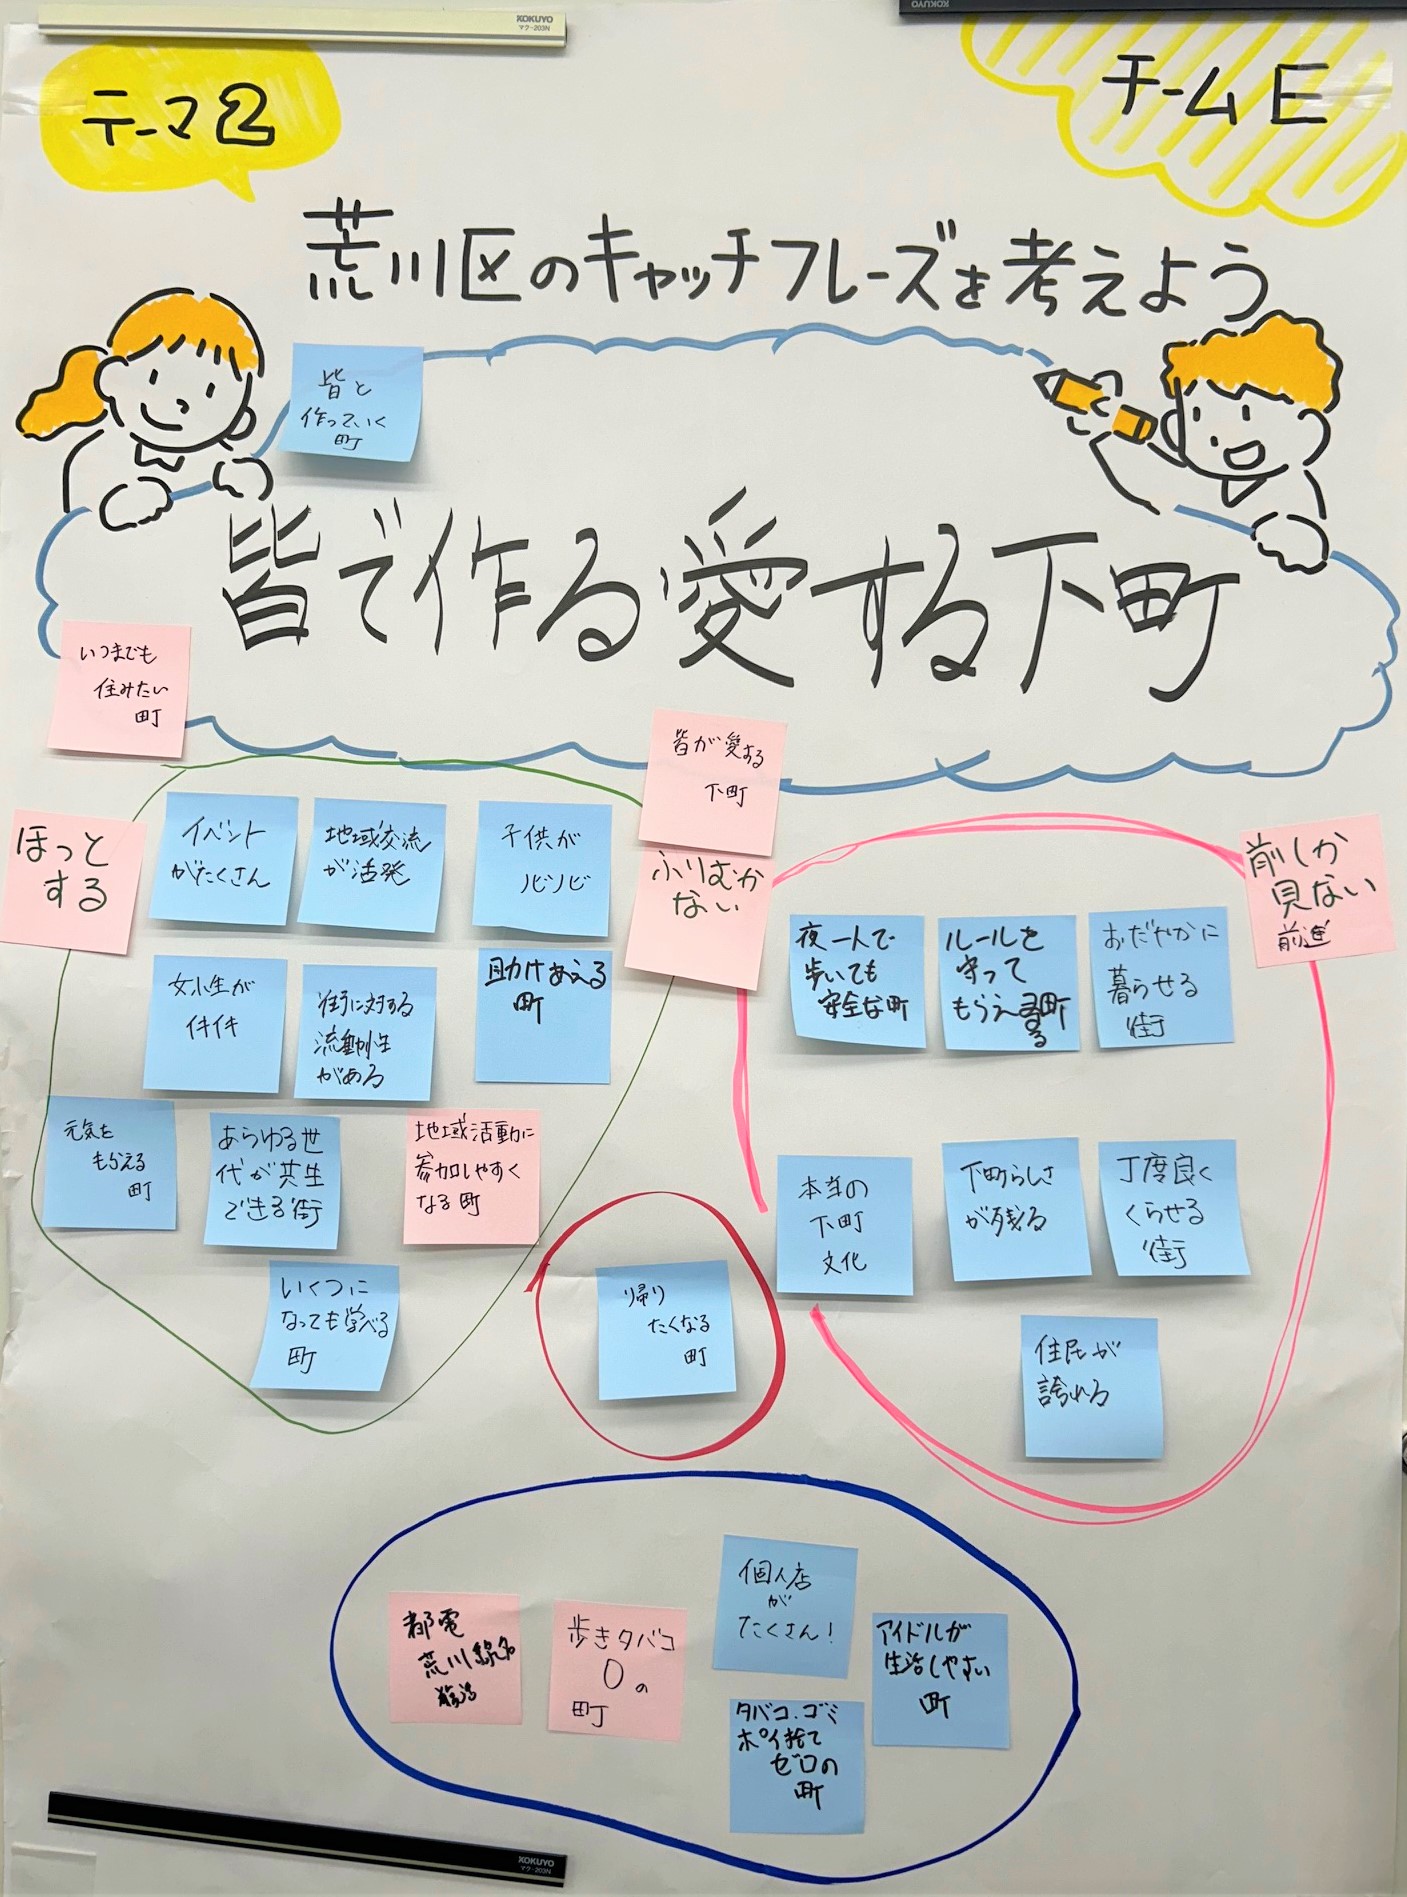 KOKUYO
マク-203N
KOKUYO
テーマ2
チームE
荒川区のキャッチフレーズを考えよう
皆と
作っていく
町
皆で作る愛する下町
いつまでも
住みたい
町
皆が愛する
下町
ほっと
する
イベント
がたくさん
地域交流
が活発
子供が
ノビノビ
ふりむか
ない
前しか
見ない
前進
女小生が
イキイキ
街に対する
流動性
がある
助けあえる
町
夜一人で
歩いても
安全な町
ルールを
守って
もらえる町
おだやかに
暮らせる
街
元気を
もらえる
町
あらゆる世
代が共生
できる街
地域活動に
参加しやすく
なる町
本当の
下町
文化
下町らしさ
が残る
丁度良く
くらせる
街
いくつに
なっても学べる
町
帰り
たくなる
町
住民が
誇れる
都電
荒川線名
復活
歩きタバコ
0の
町
個人店
が
たくさん!
アイドルが
生活しやすい
町
タバコ・ゴミ
ポイ捨て
ゼロの
町
KOKUYO
マク-203N